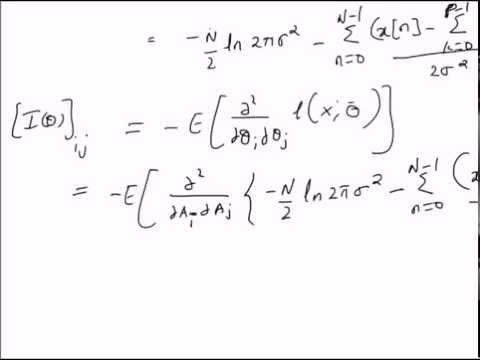 = -N/2 ln 2πσ² - Σ_{n=0}^{N-1} (x[n] - Σ_{k=0}^{P-1} / 2σ²
[I(θ)]_{ij} = -E[ ∂²/∂θ_i ∂θ_j l(x; θ̄) ]
= -E[ ∂²/∂A_i ∂A_j { -N/2 ln 2πσ² - Σ_{n=0}^{N-1} (x